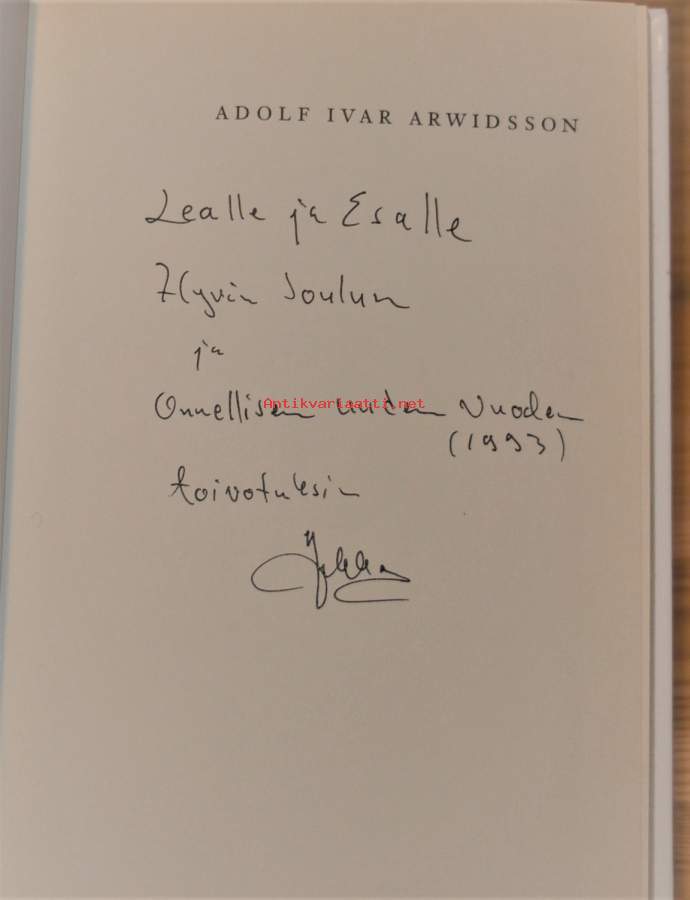 ADOLF IVAR ARWIDSSON
Lealle ja Esalle
Hyvin Joulun
ja
Onnellisen uuden Vuoden
Antikvariaatti.net
(1993)
toivotuksin
Jukka